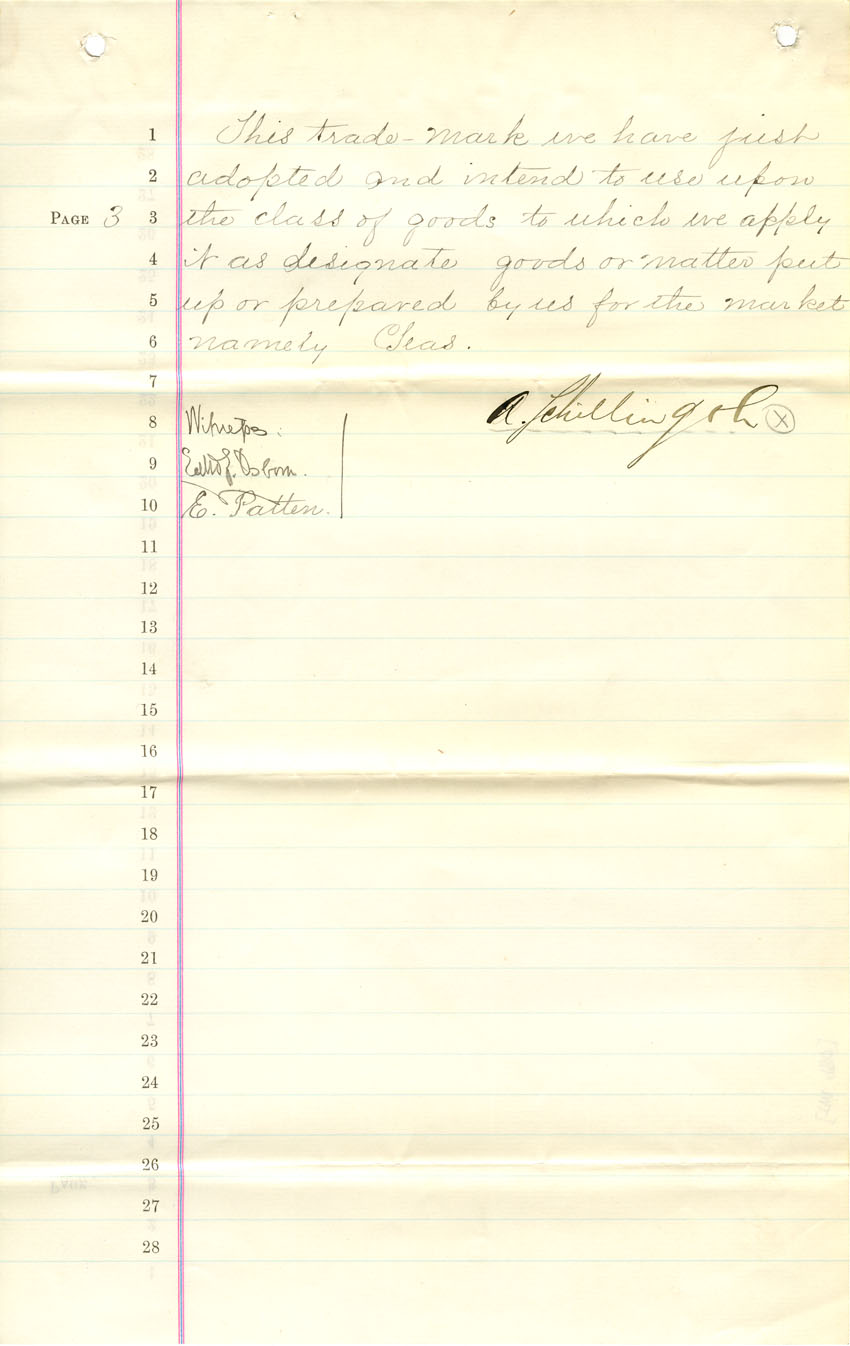 1 This trade-mark we have just
2 adopted and intend to use upon
PAGE 3 3 the class of goods to which we apply
4 it as designate goods or matter put
5 up or prepared by us for the market
6 namely Teas.
7
8 Witness: A. Schilling & Co. (X)
9 Osborn.
10 E. Patten.
11
12
13
14
15
16
17
18
19
20
21
22
23
24
25
26
27
28